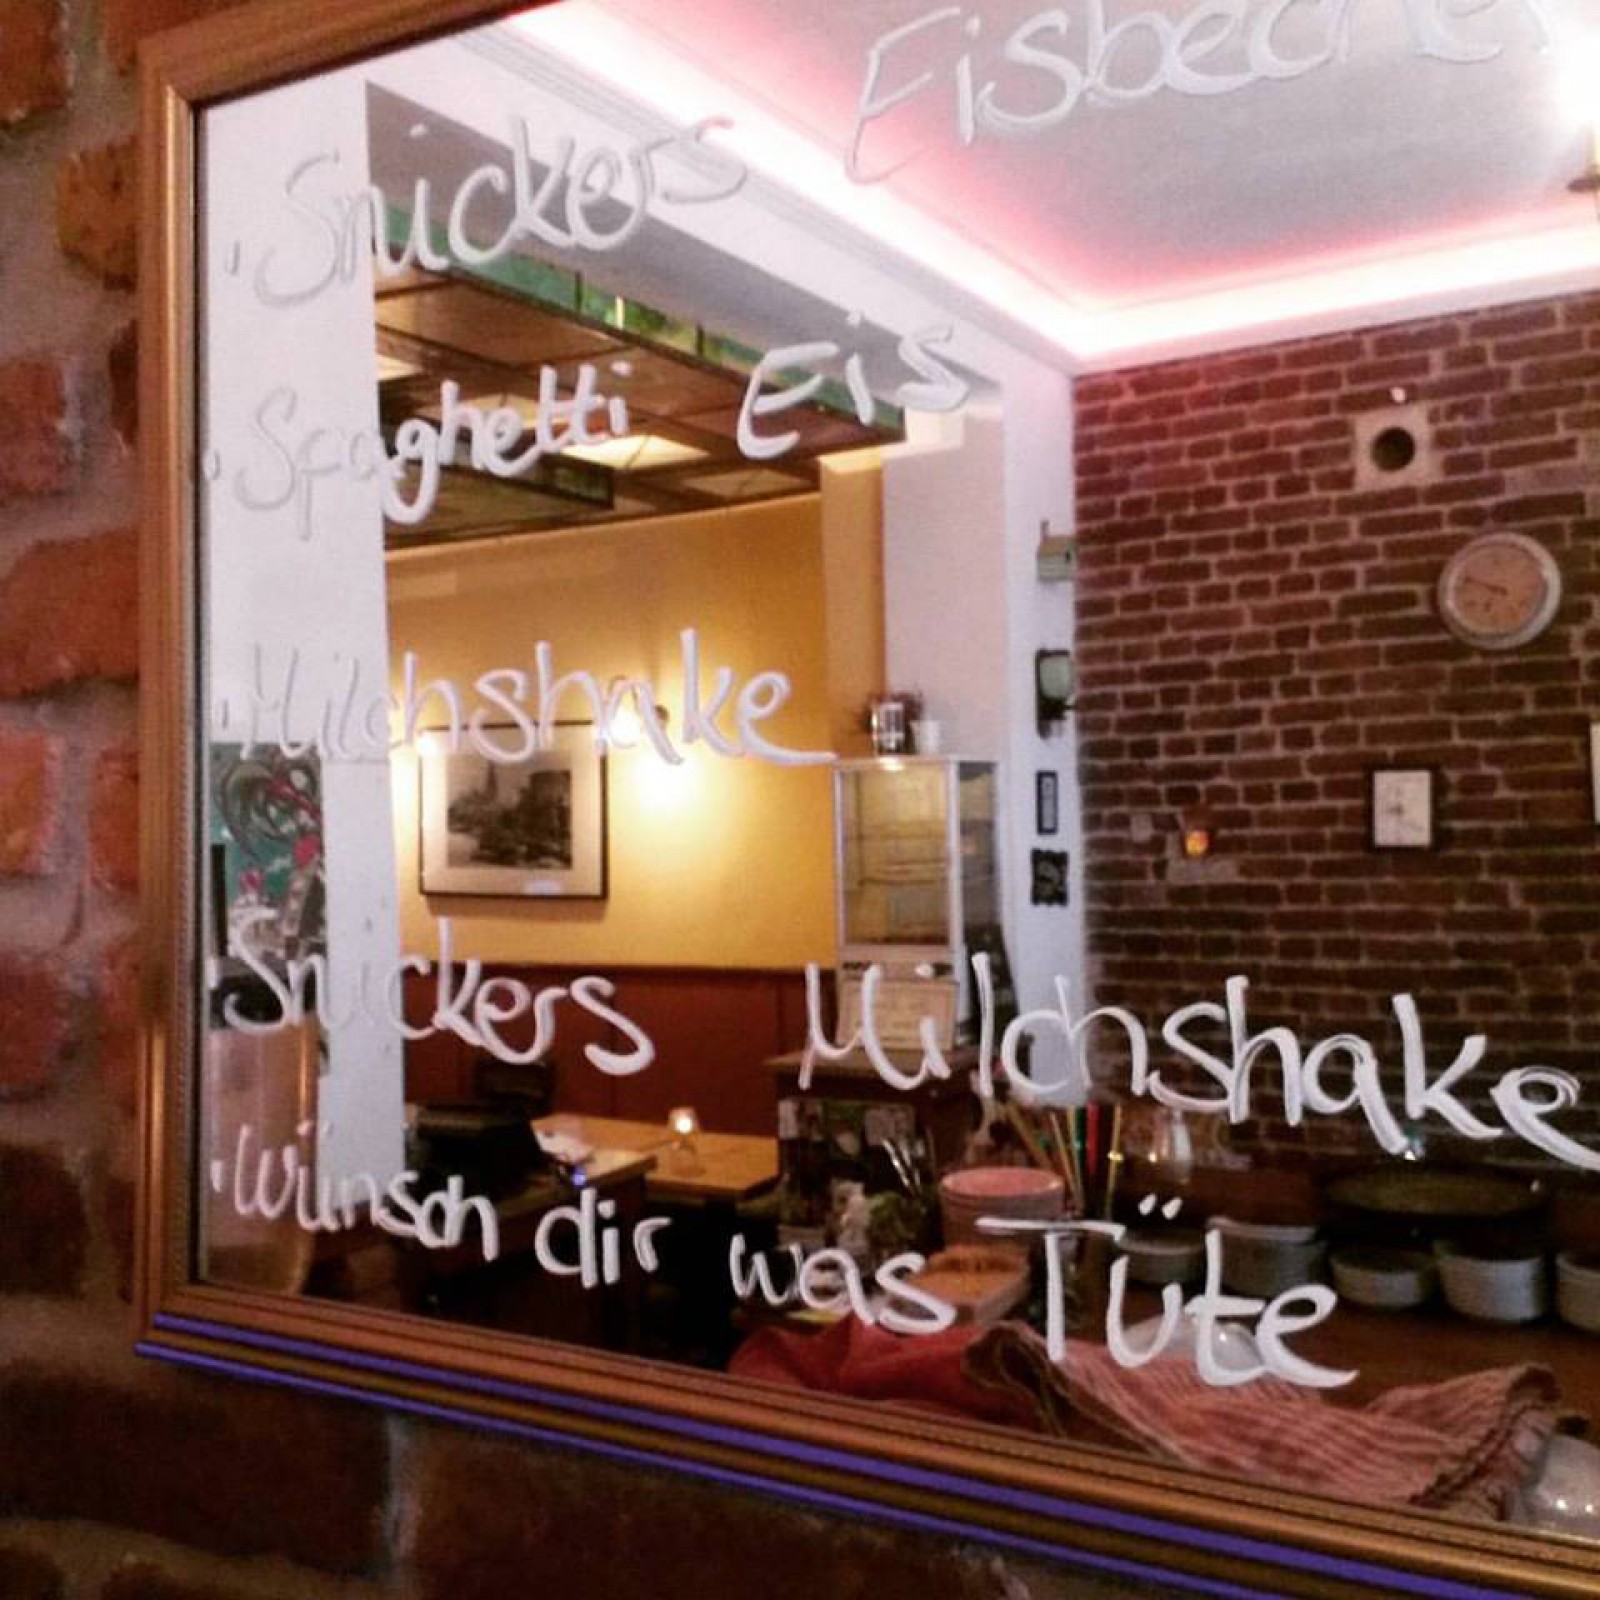 · Snickers Eisbecher
· Spaghetti Eis
· Milchshake
· Snickers Milchshake
· Wünsch dir was Tüte